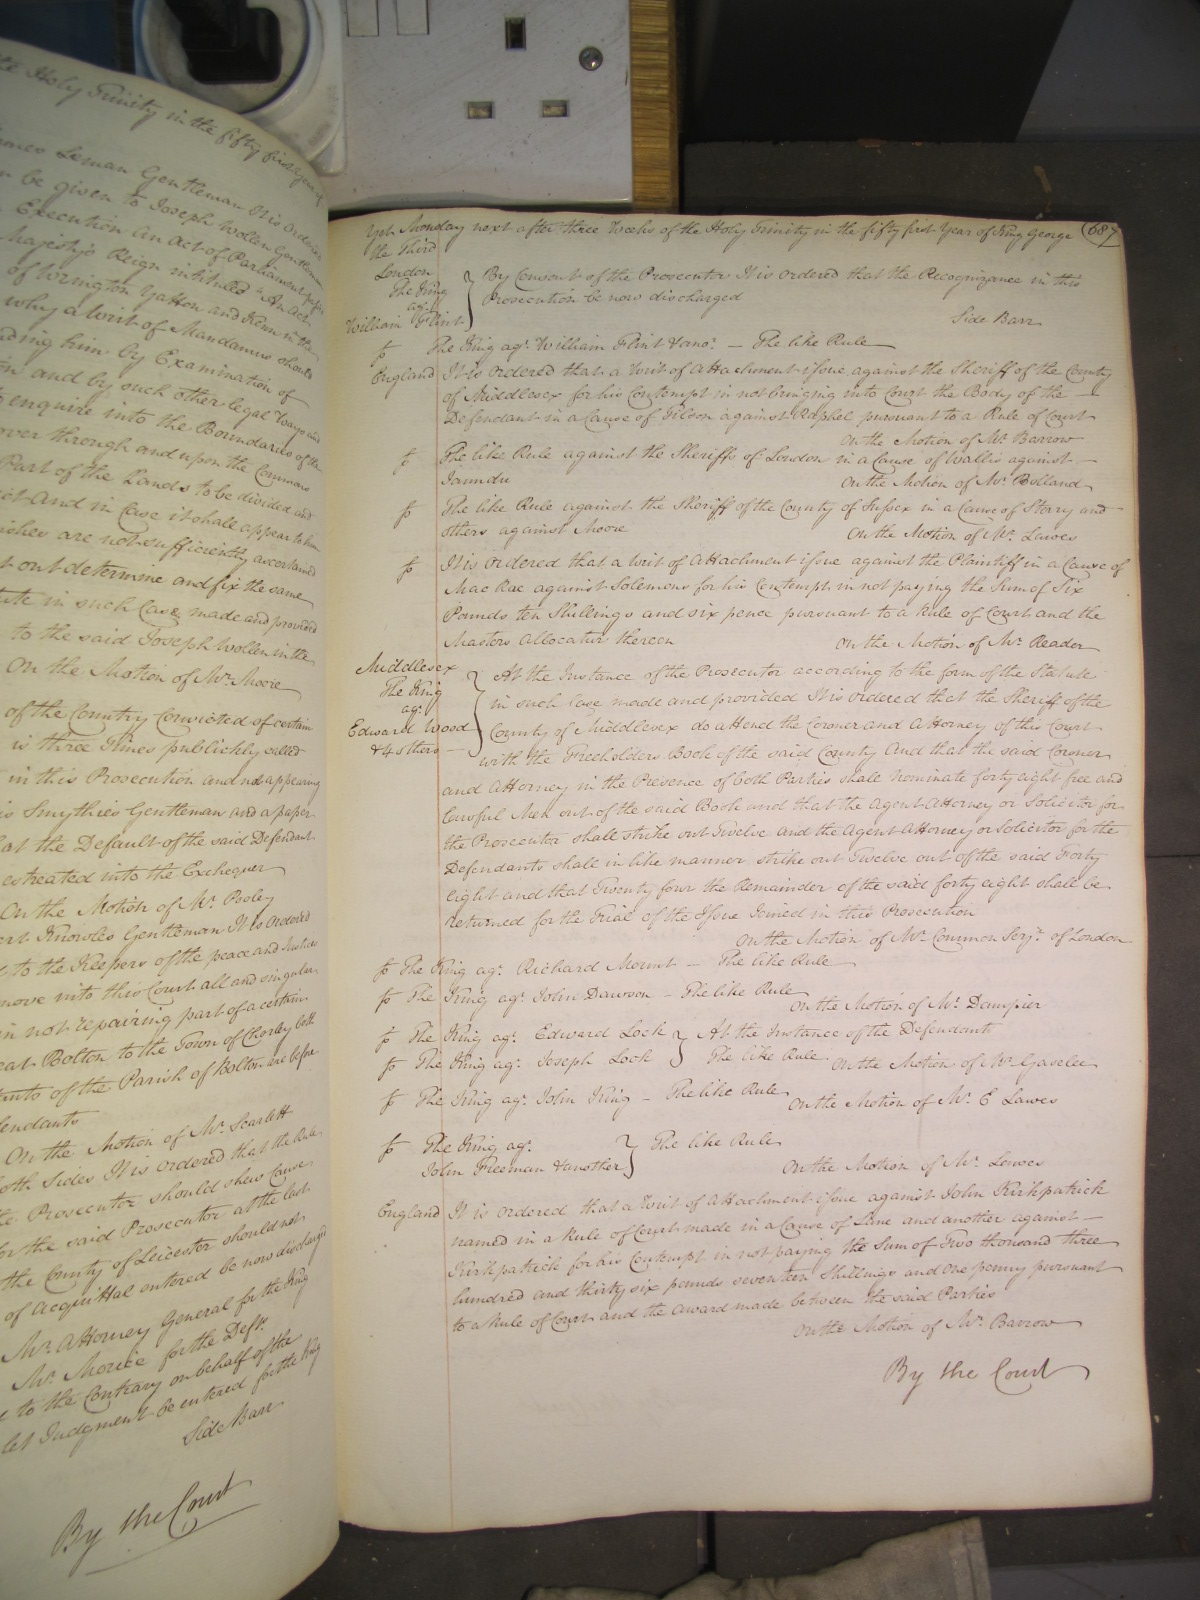 the Holy Trinity in the fifty first year of
James Leman Gentleman It is Ordered
be given to Joseph Wollen Gentleman
Execution an Act of Parliament
Majestys Reign intituled "An Act
of Wrington Yatton and Kenn in the
why a Writ of Mandamus should
him by Examination of
and by such other legal Ways and
enquire into the Boundaries of the
over through and upon the Commons
Part of the Lands to be divided and
And in Case it shall appear to him
are not sufficiently ascertained
out determine and fix the same
in such Case made and provided
to the said Joseph Wollen in the
On the Motion of Mr. Moore
of the Country Convicted of certain
is three Times publickly called
in this Prosecution and not appearing
Smythies Gentleman and a paper
at the Default of the said Defendant
estreated into the Exchequer
On the Motion of Mr. Pooley
Knowles Gentleman It is Ordered
to the Keepers of the peace and Justices
move into this Court all and singular
in not repairing part of a certain
Bolton to the Town of Chorley both
of the Parish of Bolton are before
On the Motion of Mr. Scarlett
both Sides It is ordered that the Rule
the Prosecutor should shew Cause
for the said Prosecutor at the last
the County of Leicester should not
of Acquittal entered be now discharged
Mr. Attorney General for the King
Mr. Morice for the Deft.
to the Contrary on behalf of the
let Judgment be entered for the King
Side Barr
By the Court
Yet Monday next after three Weeks of the Holy Trinity in the fifty first Year of King George 687
the Third
London
The King
agt.
William Flint
By Consent of the Prosecutor It is ordered that the Recognizance in this
Prosecution be now discharged
Side Barr
The King agt. William Flint & ano. – The like Rule
England It is ordered that a Writ of Attachment issue against the Sheriff of the County
of Middlesex for his Contempt in not bringing into Court the Body of the
Defendant in a Cause of Tilson against Raphel pursuant to a Rule of Court
On the Motion of Mr. Barrow
The like Rule against the Sheriffs of London in a Cause of Wallis against
On the Motion of Mr. Bolland
The like Rule against the Sheriff of the County of Sussex in a Cause of Sterry and
others against Moore On the Motion of Mr. Lawes
It is ordered that a Writ of Attachment issue against the Plaintiff in a Cause of
Mac Rae against Solemons for his Contempt in not paying the Sum of Six
Pounds ten Shillings and six pence pursuant to a Rule of Court and the
Masters Allocatur thereon On the Motion of Mr. Reader
Middlesex
The King
agt.
Edward Wood
& 4 others
At the Instance of the Prosecutor according to the form of the Statute
in such Case made and provided It is ordered that the Sheriff of the
County of Middlesex do attend the Coroner and Attorney of this Court
with the Freeholders Book of the said County And that the said Coroner
and Attorney in the Presence of both Parties shall nominate forty eight free and
lawful Men out of the said Book and that the Agent Attorney or Solicitor for
the Prosecutor shall strike out Twelve and the Agent Attorney or Solicitor for the
Defendants shall in like manner strike out Twelve out of the said Forty
eight and that Twenty four the Remainder of the said forty eight shall be
returned for the Trial of the Issue Joined in this Prosecution
On the Motion of Mr. Common Serjt. of London
The King agt. Richard Mount – The like Rule
The King agt. John Dawson – The like Rule
On the Motion of Mr. Dampier
The King agt. Edward Lock } At the Instance of the Defendants
The King agt. Joseph Lock } The like Rule On the Motion of Mr. Gaselee
The King agt. John King – The like Rule
On the Motion of Mr. E Lawes
The King agt.
John Freeman & another } The like Rule
On the Motion of Mr. Lawes
England It is ordered that a Writ of Attachment issue against John Kirkpatrick
named in a Rule of Court made in a Cause of Lane and another against
Kirkpatrick for his Contempt in not paying the Sum of Two thousand three
hundred and thirty six pounds seventeen Shillings and one penny pursuant
to a Rule of Court and the Award made between the said Parties
On the Motion of Mr. Barrow
By the Court